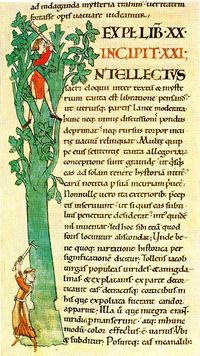 ad indaganda mysteria trahimur veritatem
fortasse opis vacuare videamur.
EXPL LIB XX
INCIPIT XXI
NTELLECTUS
sacri eloquii inter textū & myste
rium tanta est libratione pensand'
ut utriusq; partis lance moderata
hunc neq; nimię discussionis pondus
deprimat. neq; rursus torpor incu
rię vacuū relinquat. Multę quip
pe eius sententię tanta allegoriarū
conceptione sunt gravidę. ut qsqs
eas ad solam tenere hystoriā
earū notitia p suā incuriam
Nonnullę vero ita exteriorib; pcep
tis inserviunt. ut si quis eas subti
lius penetrare desiderat. int' quidē
nil inveniat. sed hoc sibi etiā quod
foris locuntur abscondat; Unde be
ne quoq; narratione historica per
significationē dicitur; Tollens iacob
virgas populeas virides. et amigdali
nas & ex platanis. ex parte decorti
cavit eas. detractisq; corticib; in
his quę expoliata fuerant. candor
apparuit; Illa û quę integra erant
viridia permanserunt. atq; in hunc
modū color effectus ē varius. Ubi
& subditur; Posuitq; eas in canalib;